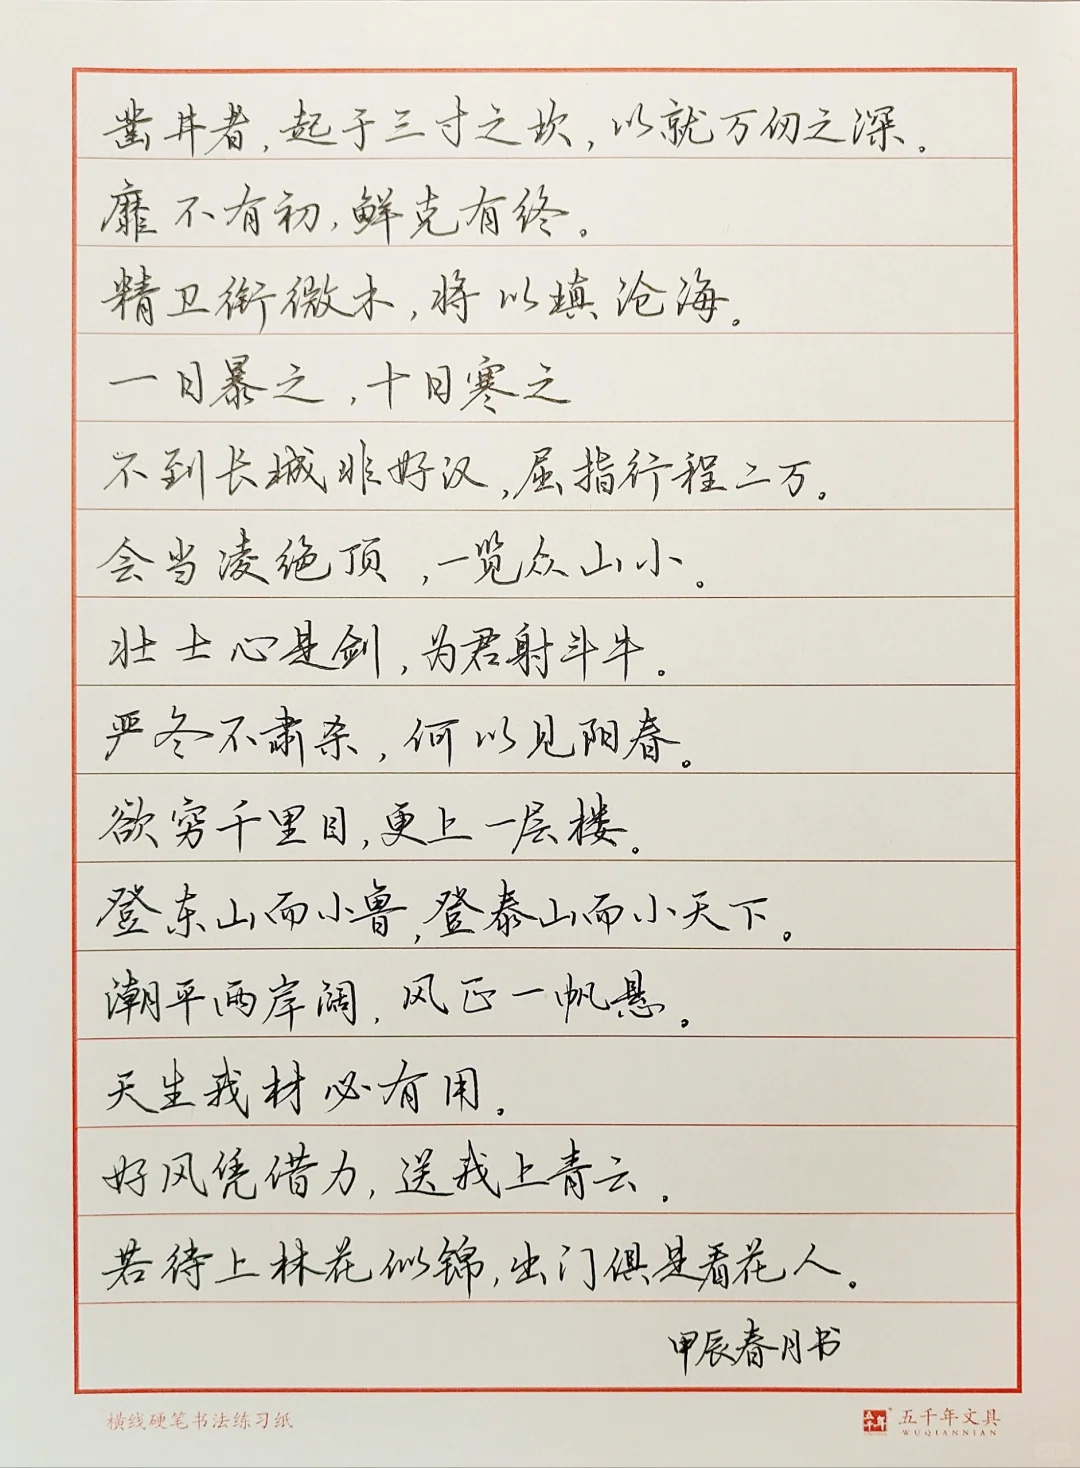 凿井者,起于三寸之坎,以就万仞之深。
靡不有初,鲜克有终。
精卫衔微木,将以填沧海。
一日暴之,十日寒之
不到长城非好汉,屈指行程二万。
会当凌绝顶,一览众山小。
壮士心是剑,为君射斗牛。
严冬不肃杀,何以见阳春。
欲穷千里目,更上一层楼。
登东山而小鲁,登泰山而小天下。
潮平两岸阔,风正一帆悬。
天生我材必有用。
好风凭借力,送我上青云.
若待上林花似锦,出门俱是看花人。
甲辰春月书
横线硬笔书法练习纸
五千年文具
WUQIANNIAN